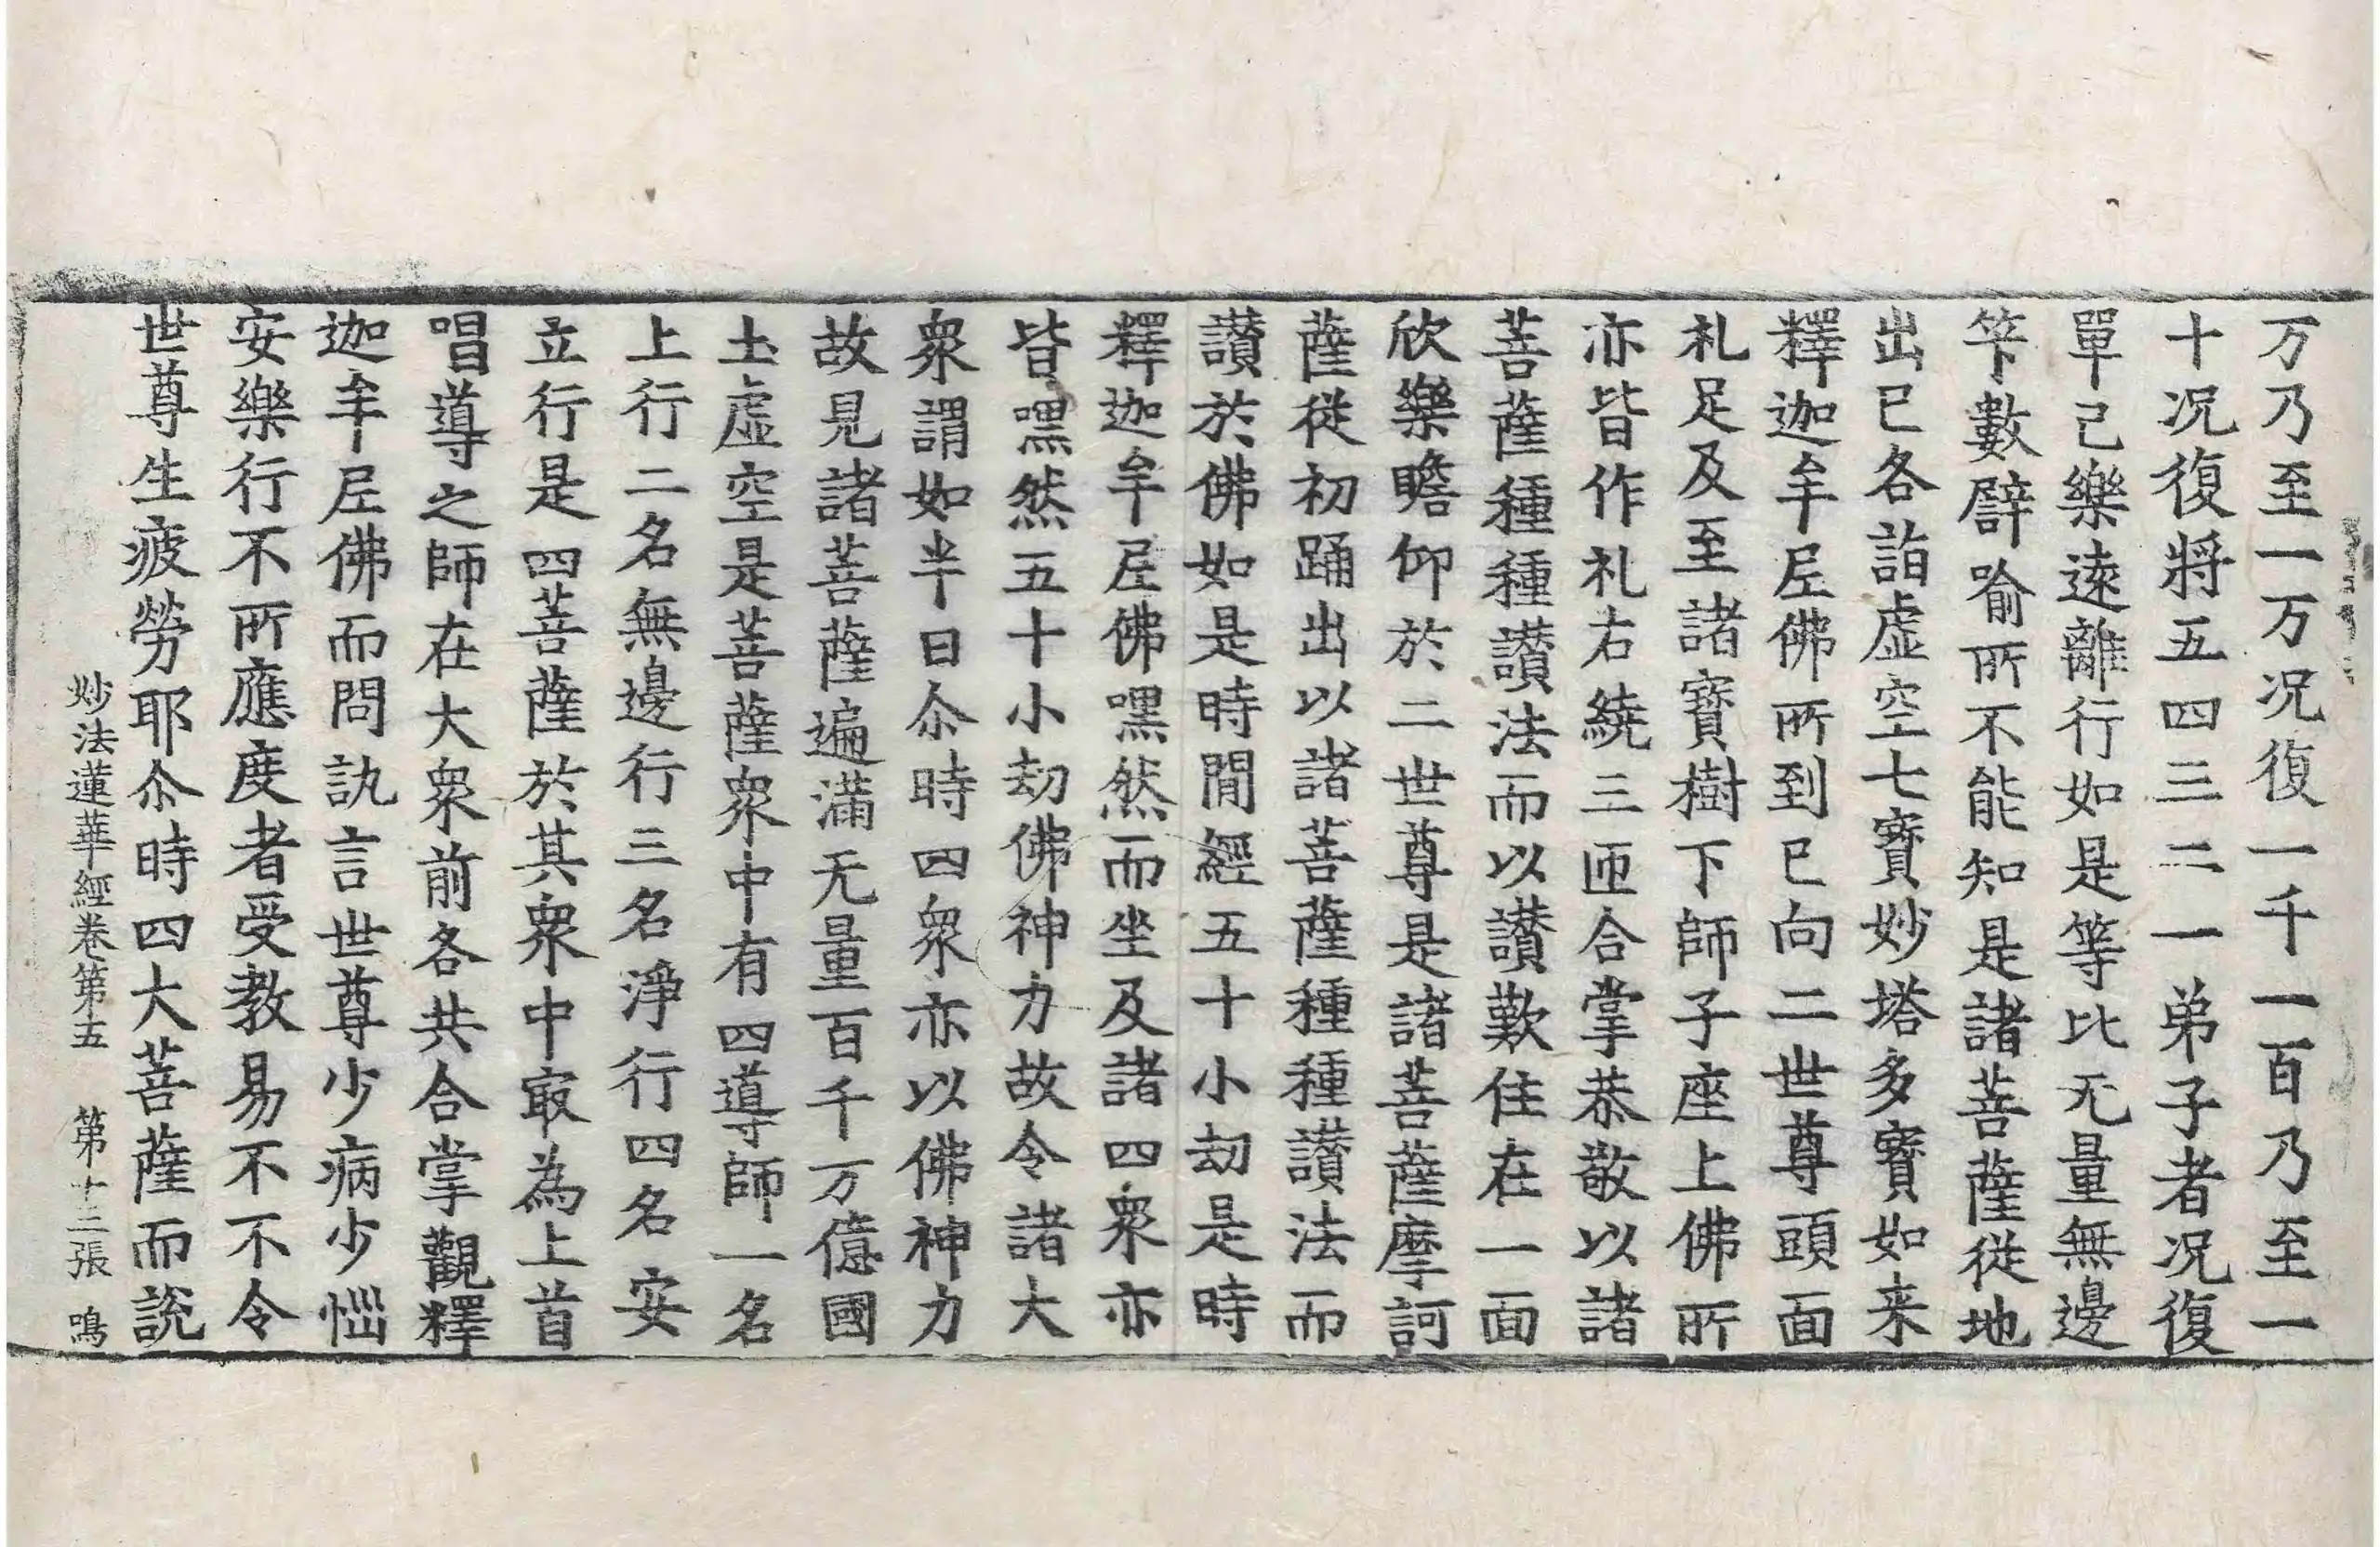 万乃至一万况復一千一百乃至一
十况復將五四三二一弟子者况復
單己樂遠離行如是等比无量無邊
笇數譬喻所不能知是諸菩薩從地
出已各詣虛空七寶妙塔多寶如来
釋迦牟尼佛所到已向二世尊頭面
礼足及至諸寶樹下師子座上佛所
亦皆作礼右繞三匝合掌恭敬以諸
菩薩種種讃法而以讃歎住在一面
欣樂瞻仰於二世尊是諸菩薩摩訶
薩從初踊出以諸菩薩種種讃法而
讃於佛如是時間經五十小劫是時
釋迦牟尼佛嘿然而坐及諸四衆亦
皆嘿然五十小劫佛神力故令諸大
衆謂如半日尒時四衆亦以佛神力
故見諸菩薩遍滿无量百千万億國
土虛空是菩薩衆中有四導師一名
上行二名無邊行三名淨行四名安
立行是四菩薩於其衆中㝡為上首
唱導之師在大衆前各共合掌觀釋
迦牟尼佛而問訊言世尊少病少惱
安樂行不所應度者受教易不不令
世尊生疲勞耶尒時四大菩薩而說
妙法蓮華經卷第五 第十二張 鳴